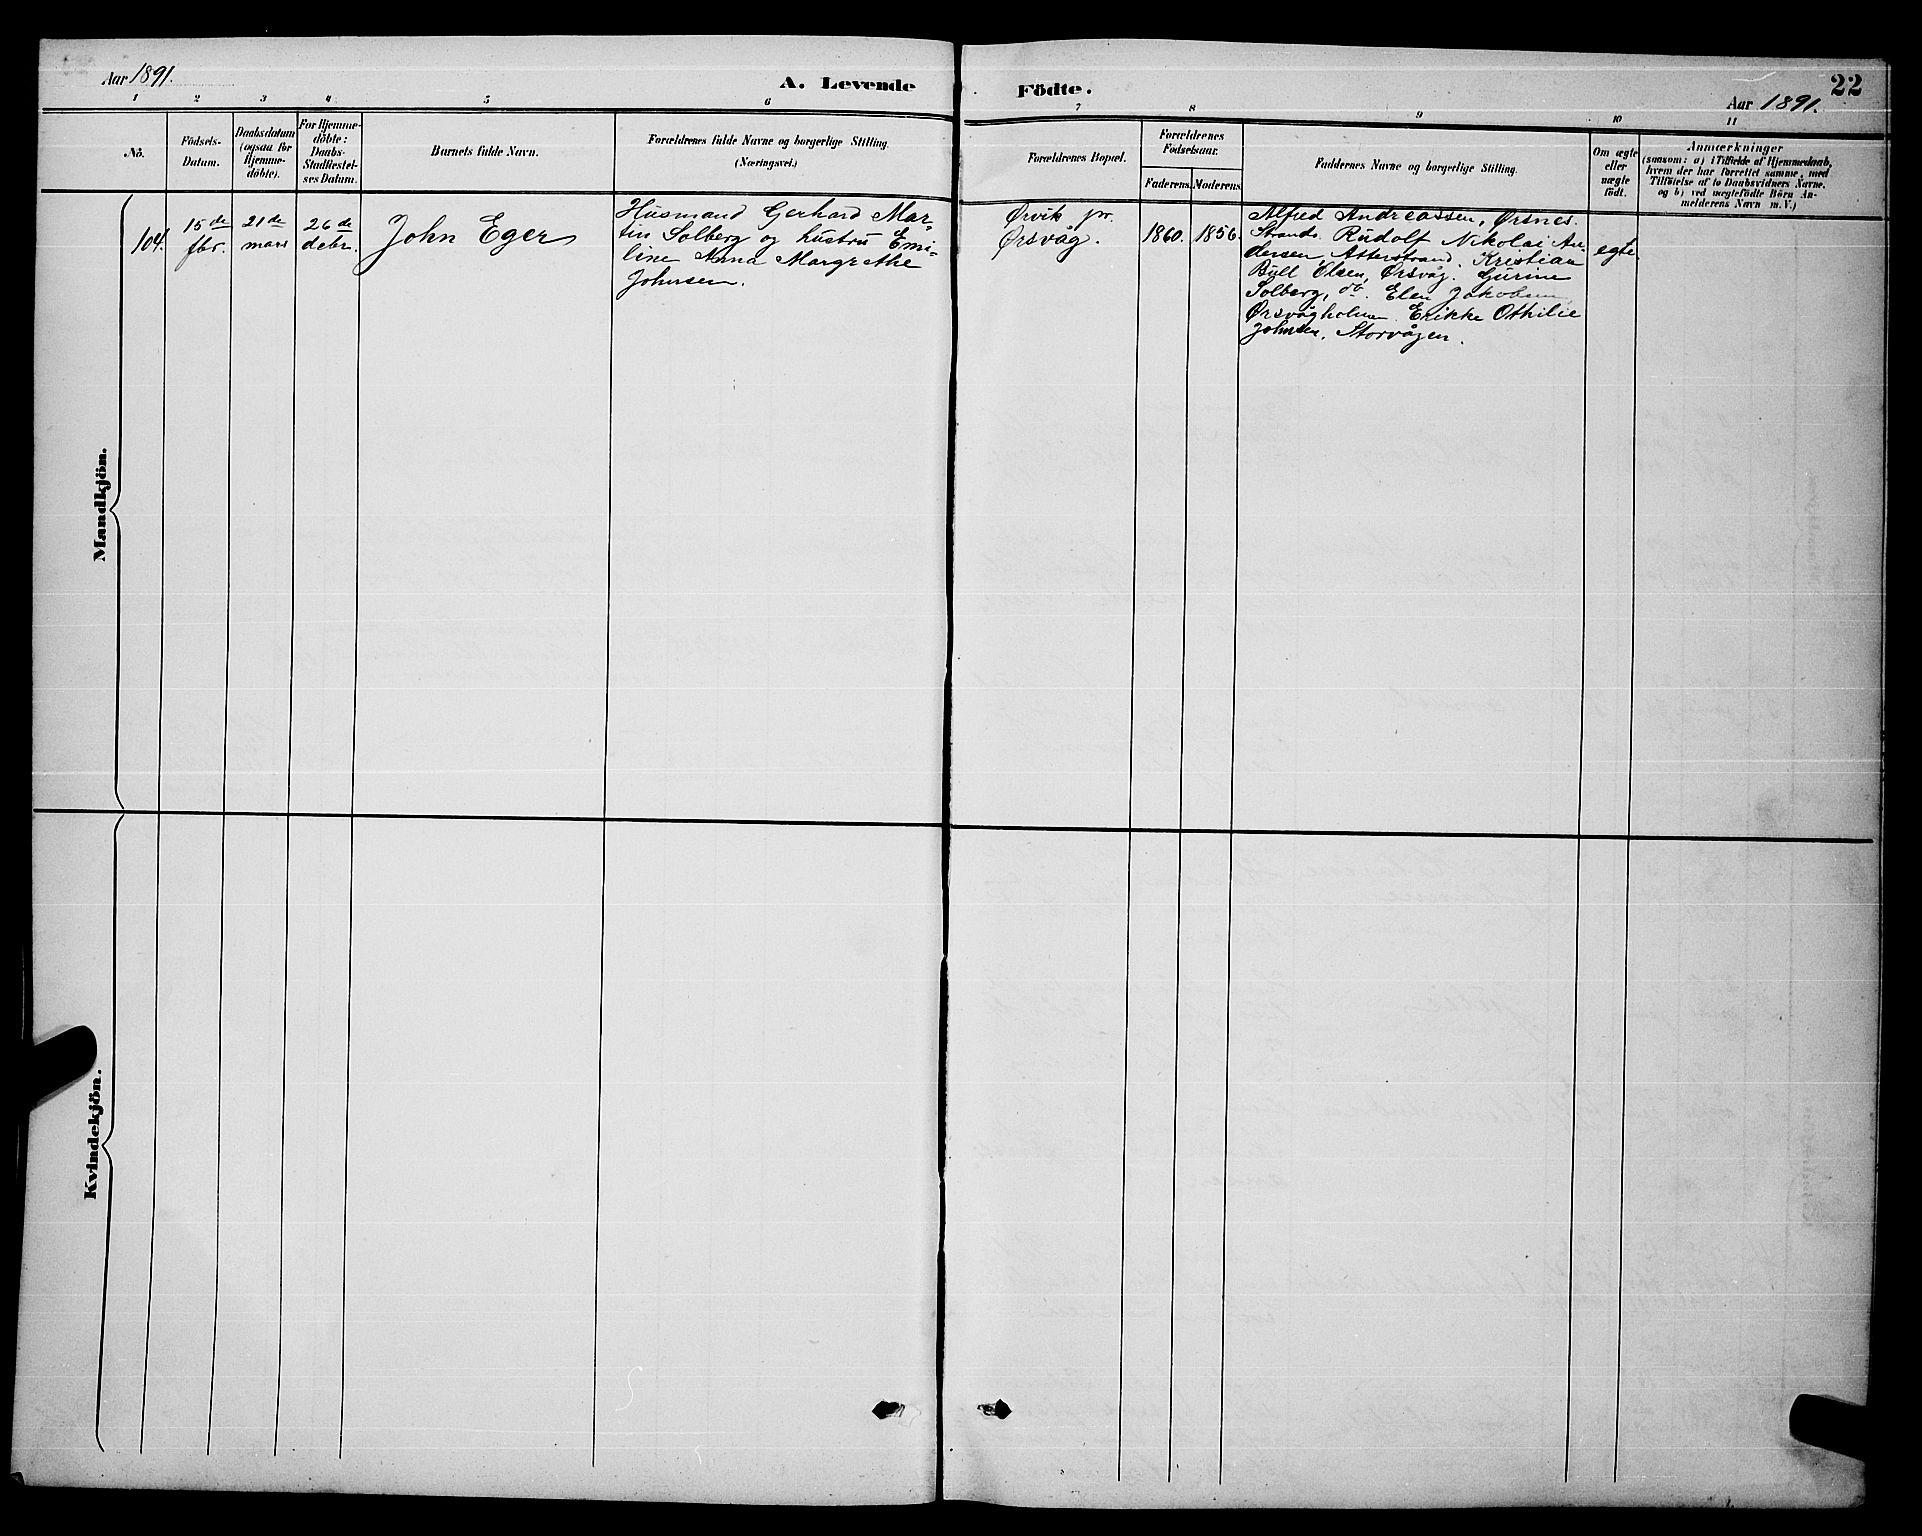 Aar 1891.
A. Levende
Födte.
22
Aar 1891.
1 2 3 4 5 6 7 8 9 10 11
Nô.
Födsels-
Datum.
Daabsdatum
(ogsaa for
Hjemme-
döbte).
For Hjemme-
döbte:
Daabs-
Stadfæstel-
ses Datum.
Barnets fulde Navn.
Forældrenes fulde Navne og borgerlige Stilling
(Næringsvei.)
Forældrenes Bopæl.
Forældrenes
Födselsaar.
Faderens.
Moderens.
Faddernes Navne og borgerlige Stilling.
Om ægte
eller
uægte
födt.
Anmærkninger
(saasom: a) i Tilfælde af Hjemmedaab,
hvem der har forrettet samme, med
Tilföielse af to Daabsvidners Navne.
og b) ved uægtefödte Börn An-
melderens Navn m. V.)
Mandkjön.
104.
15 de
fbr.
21 de
mars
26 de
debr.
John Eger
Husmand Gerhard Mar-
tin Solberg og hustru Emi-
line Anna Margrethe
Johnsen.
Ørvik pr.
Ørsvåg.
1860.
1856.
Alfred Andreassen, Ørsnes
Strands. Rudolf Nikolai An-
dersen, Atterstrand. Kristian
Bull Olsen, Ørsvåg. Gurine
Solberg, do. Elen Jakobsen,
Ørsvågholmen. Erikke Othilie
Johnsen, Storvågen.
egte.
Kvindekjön.